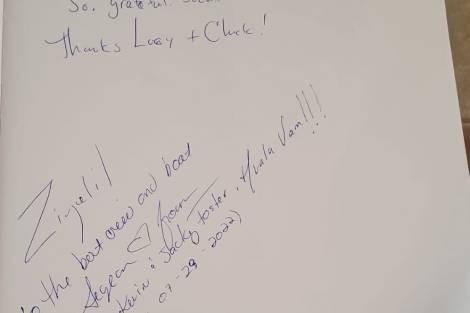 So, grateful
Thanks Lucy + Chuck!
Zivjeli!
to the best crew and boat
Kevin & Jacky Foster. Hvala Vam!!!
07-29-2022)